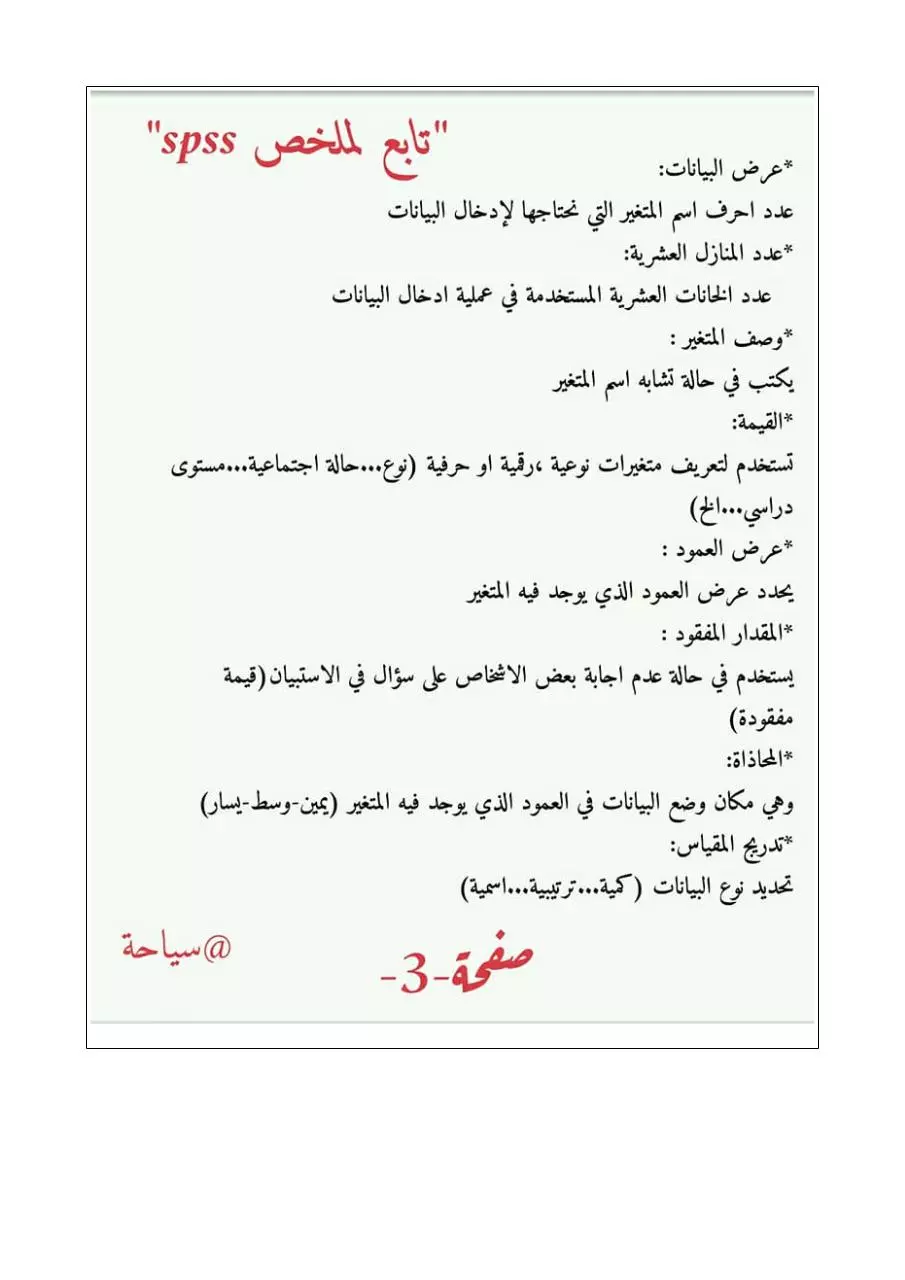 "تابع لملخص spss"
*عرض البيانات:
عدد احرف اسم المتغير التي نحتاجها لإدخال البيانات
*عدد المنازل العشرية:
عدد الخانات العشرية المستخدمة في عملية ادخال البيانات
*وصف المتغير :
يكتب في حالة تشابه اسم المتغير
*القيمة:
تستخدم لتعريف متغيرات نوعية ،رقمية او حرفية (نوع...حالة اجتماعية...مستوى
دراسي...الخ)
*عرض العمود :
يحدد عرض العمود الذي يوجد فيه المتغير
*المقدار المفقود :
يستخدم في حالة عدم اجابة بعض الاشخاص على سؤال في الاستبيان(قيمة
مفقودة)
*المحاذاة:
وهي مكان وضع البيانات في العمود الذي يوجد فيه المتغير (يمين-وسط-يسار)
*تدريج المقياس:
تحديد نوع البيانات (كمية...ترتيبية...اسمية)
@سياحة
صفحة-3-